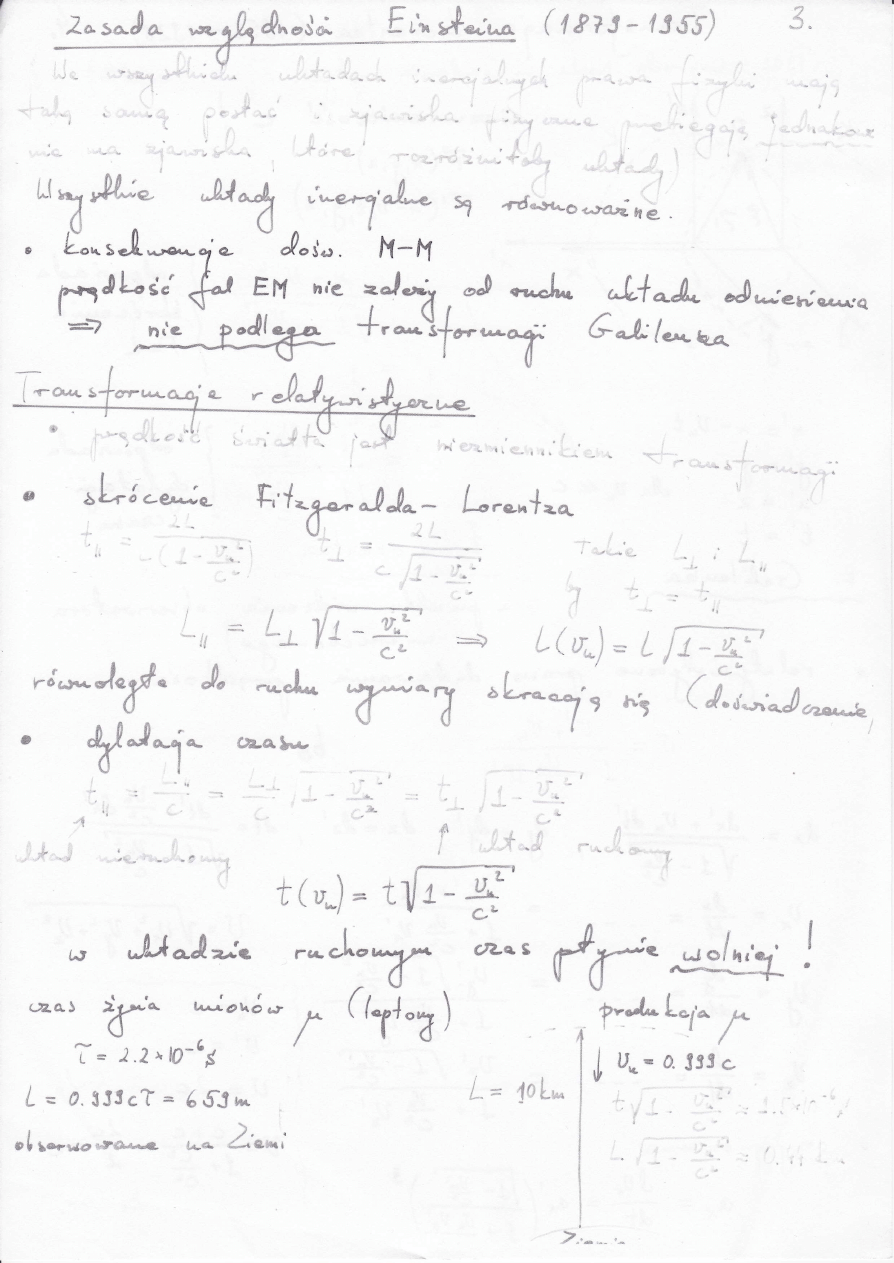 Zasada względności Einsteina (1879-1955) 3.
We wszystkich układach inercjalnych prawa fizyki mają
taką samą postać i zjawiska fizyczne przebiegają jednakowo
nie ma zjawiska, które rozróżniłoby układy)
Wszystkie układy inercjalne są równoważne.
• konsekwencje dośw. M-M
prędkość fal EM nie zależy od ruchu układu odniesienia
⇒ nie podlega transformacji Galileusza
Transformacje relatywistyczne
• prędkość światła jest niezmiennikiem transformacji
• skrócenie Fitzgeralda-Lorentza
t∥ = 2L / c(1 - vᵤ²/c²) t⊥ = 2L / c√(1 - vᵤ²/c²) Takie L⊥ i L∥
by t⊥ = t∥
L∥ = L⊥ √(1 - vᵤ²/c²) ⇒ L(vᵤ) = L√(1 - vᵤ²/c²)
równoległe do ruchu wymiary skracają się (doświadczenie,
• dylatacja czasu
t∥ = L∥/c = L⊥/c √(1 - vᵤ²/c²) = t⊥ √(1 - vᵤ²/c²)
układ nieruchomy układ ruchomy
t(vᵤ) = t√(1 - vᵤ²/c²)
w układzie ruchomym czas płynie wolniej!
czas życia mionów μ (leptony) produkcja μ
τ = 2.2×10⁻⁶s ↓ vᵤ = 0.999c
L = 0.999cτ = 659m L = 10km t√(1 - vᵤ²/c²)
obserwowane na Ziemi L√(1 - vᵤ²/c²)
Ziemia